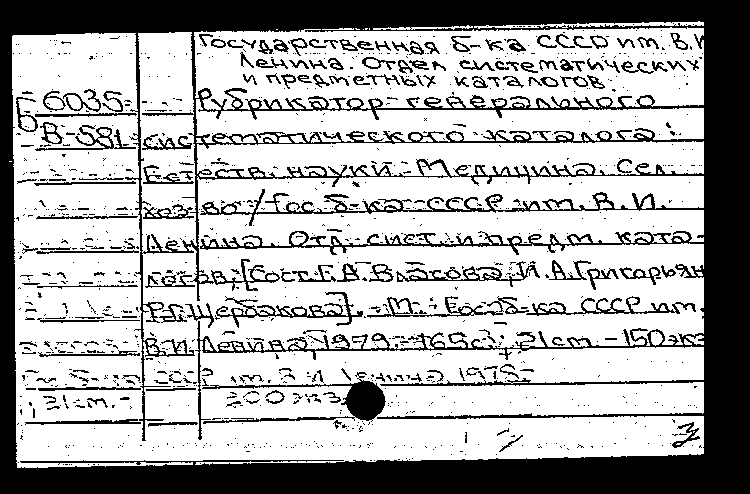 Государственная б-ка СССР им. В.И
Ленина. Отдел систематических
и предметных каталогов.
Б 6035 Рубрикатор генерального
В-581 систематического каталога:
Естеств. науки. Медицина. Сел.
хоз-во / Гос. б-ка СССР им. В. И.
Ленина. Отд. сист. и предм. ката-
логов; [Сост. Г.А. Власова, И.А. Григорьян
Р.Г. Щербакова]. - М.: Гос. б-ка СССР им.
В.И. Ленина, 1979. - 165 с.; 21 cm. - 150 экз
Гос. б-ка СССР им. В И Ленина 1978-
; 21 cm. - 300 экз.